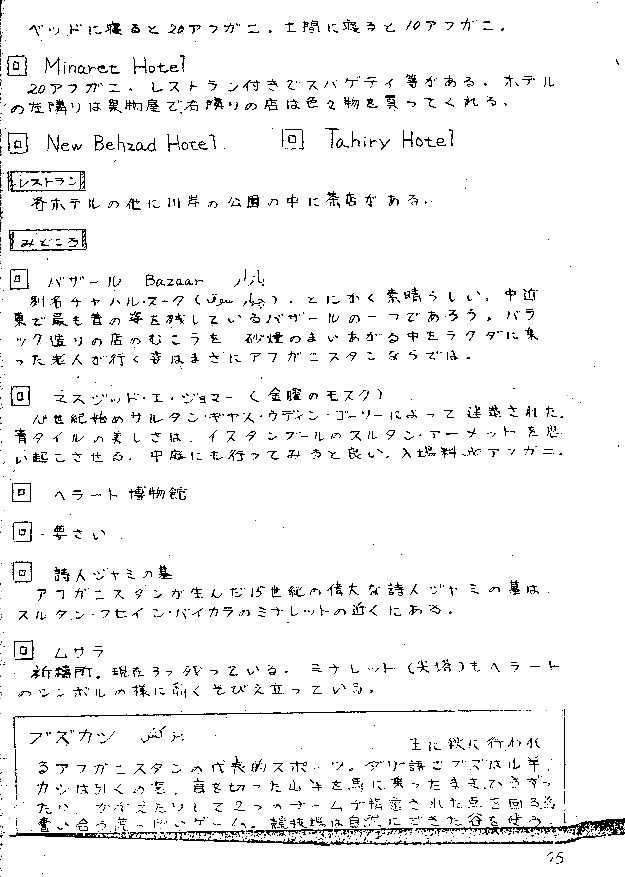 ベッドに寝ると20アフガニ、土間に寝ると10アフガニ。
回 Minaret Hotel
20アフガニ、レストラン付きでスパゲティ等がある。ホテル
の左隣りは果物屋で、右隣りの店は色々物を買ってくれる。
回 New Behzad Hotel 回 Tahiry Hotel
レストラン
各ホテルの他に川岸の公園の中に茶店がある。
みどころ
回 バザール Bazaar بازار
別名チャハル・スーク( )、とにかく素晴らしい。中近
東で最も昔の姿を残しているバザールの一つであろう。バラ
ック造りの店のむこうを 砂煙のまいあがる中をラクダに乗
った老人が行く姿はまさにアフガニスタンならでは。
回 マスジッド・エ・ジョマー(金曜のモスク)
世紀始めサルタン・ギヤス・ウディン・ゴーリーによって建築された。
青タイルの美しさは、イスタンブールのスルタン・アーメットを思
い起こさせる。中庭にも行ってみると良い。入場料 アフガニ。
回 ヘラート博物館
回 要さい
回 詩人ジャミの墓
アフガニスタンが生んだ15世紀の偉大な詩人ジャミの墓は、
スルタン・フセイン・バイカラのミナレットの近くにある。
回 ムサラ
祈祷所。現在3つ残っている。ミナレット(尖塔)もヘラート
のシンボルの様に高くそびえ立っている。
ブズカシ بزکشی 主に秋に行われ
るアフガニスタンの代表的スポーツ。ダリ語でブズは山羊、
カシは引くの意、首を切った山羊を馬に乗ったままひきずっ
たり、かかえたりして2つのチームが指定された点を回る為
奮い合う荒っぽいゲーム。競技場は自然にできた谷を使う。